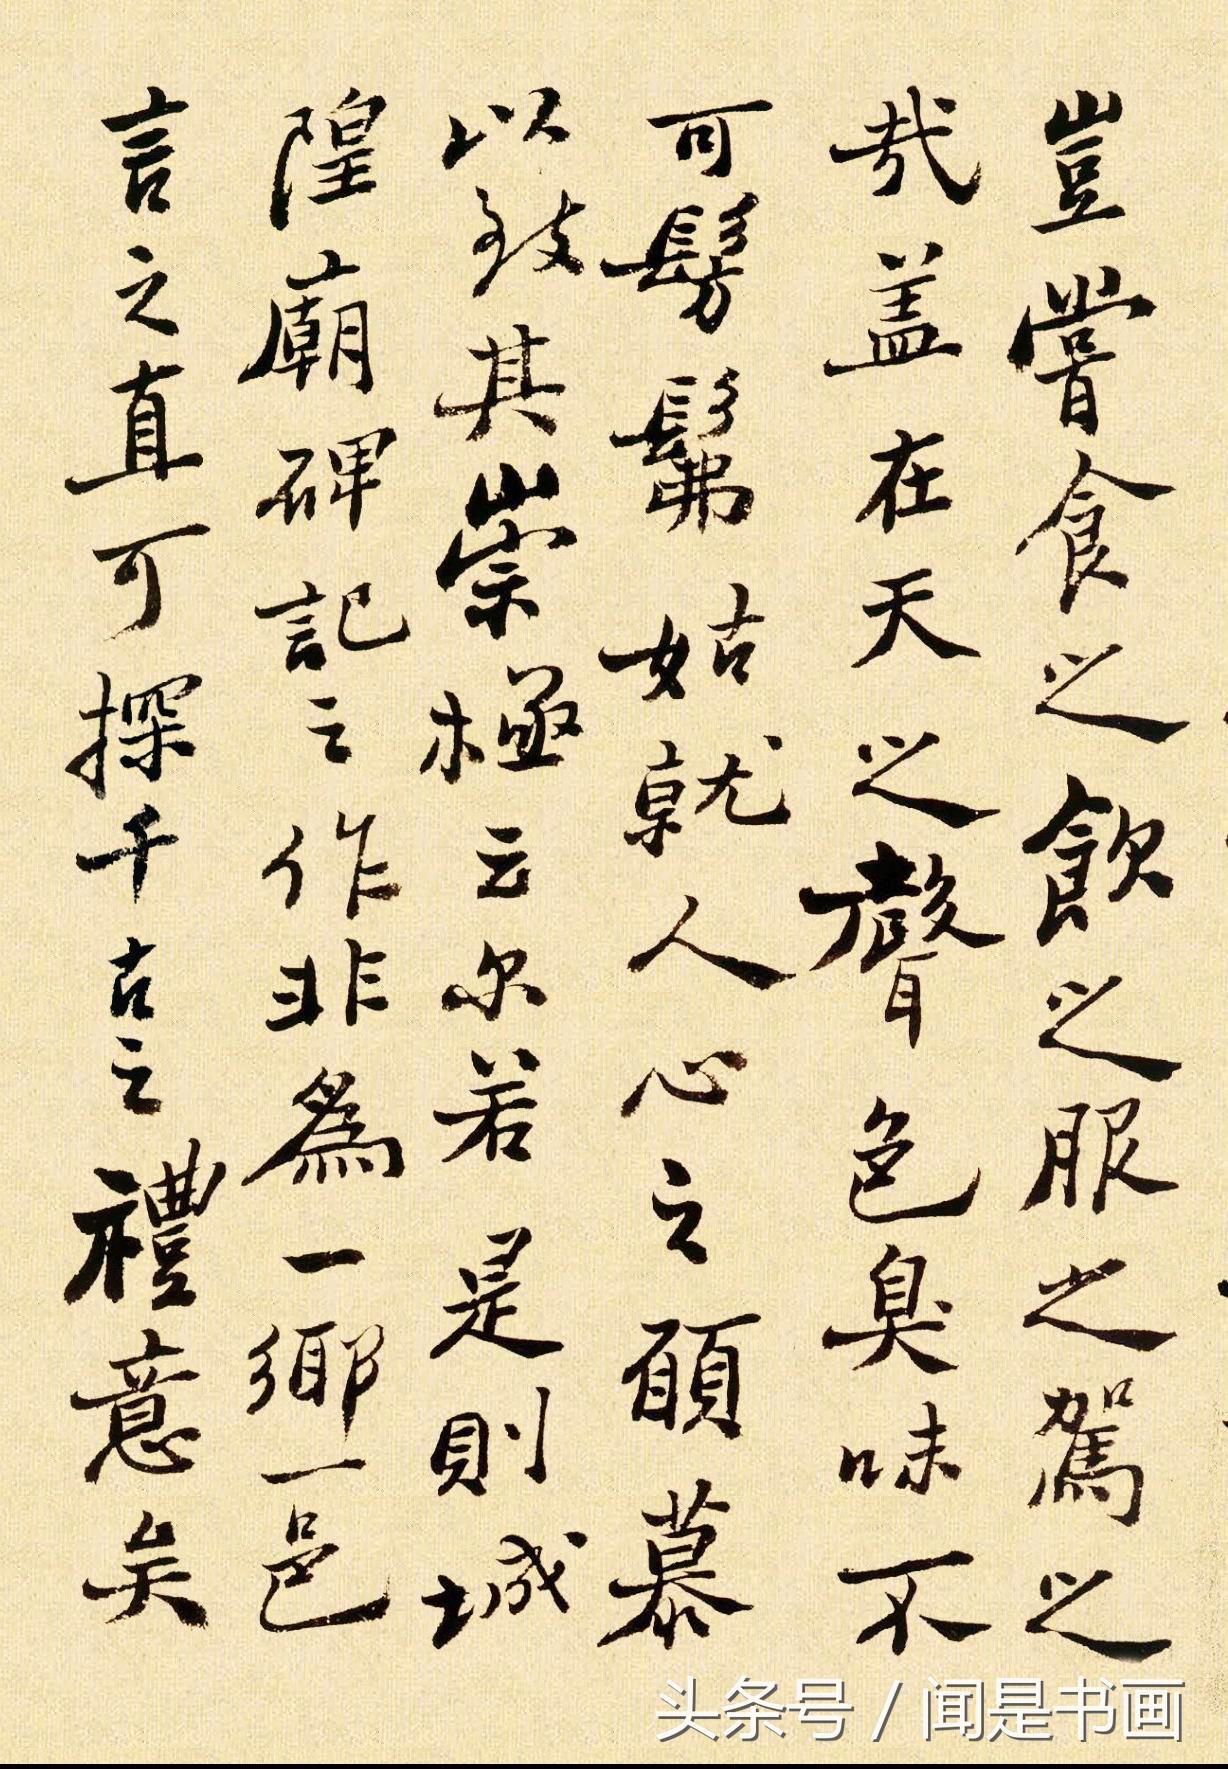 豈嘗食之飲之服之駕之
哉盖在天之聲色臭味不
可髣髴姑就人心之願慕
以致其崇極云尔若是則城
隍廟碑記之作非為一鄉一邑
言之直可探千古之禮意矣
头条号 / 闻是书画